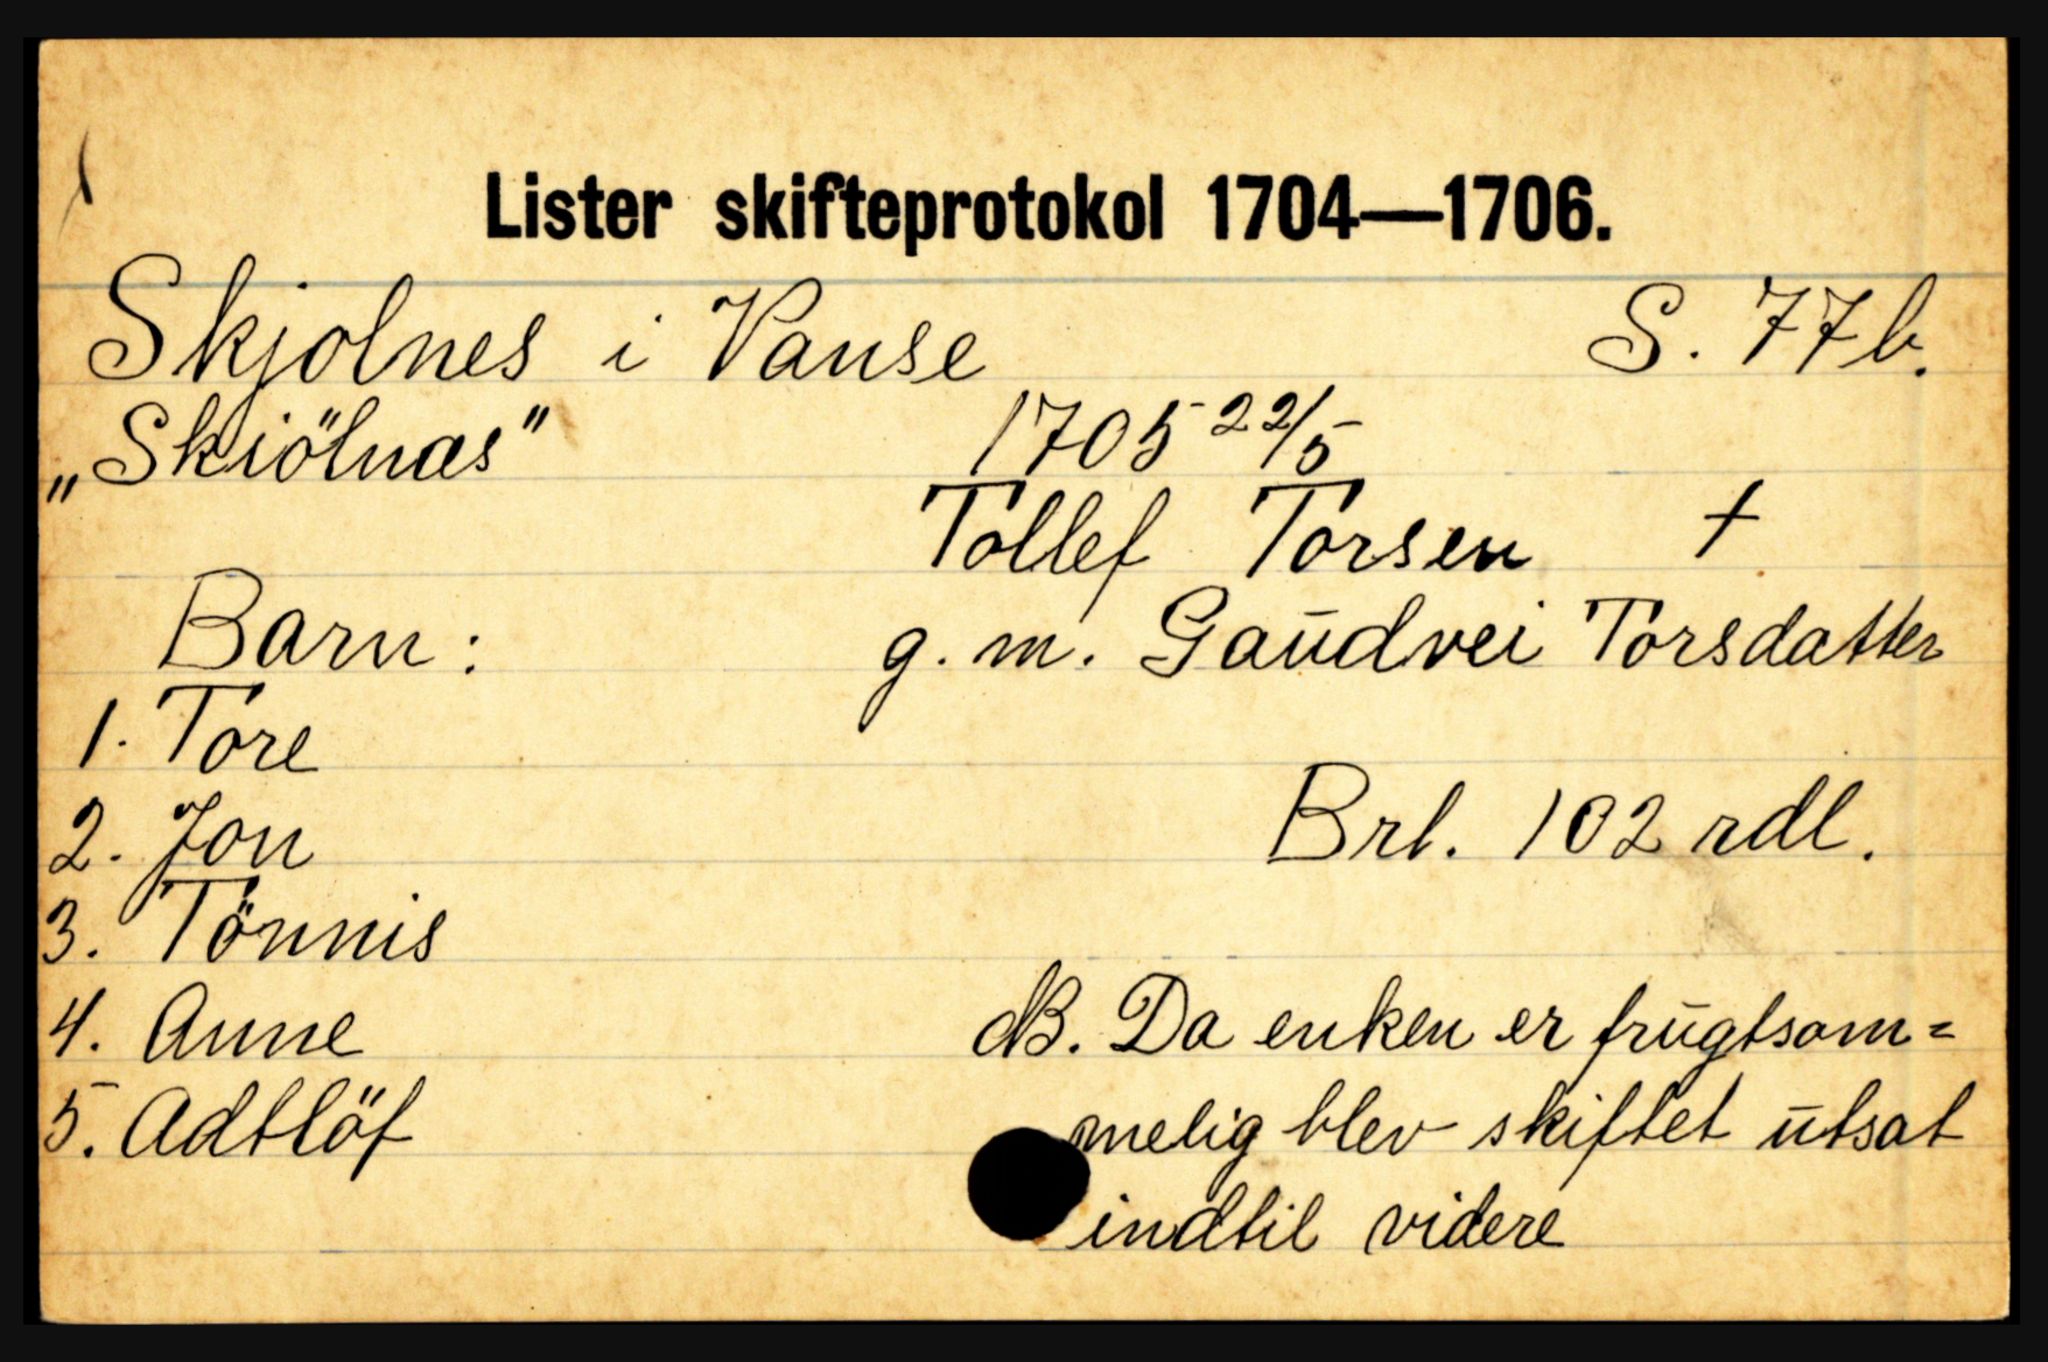 Lister skifteprotokol 1704—1706.
Skjolnes i Vanse S. 77b.
„Skiölnæs" 1705 22/5
Tollef Torsen †
Barn: g. m. Gaudvei Torsdatter
1. Tore
2. Jon Brt. 102 rdl.
3. Tönnis
4. Anne NB. Da enken er frugtsom=
5. Adtlöf melig blev skiftet utsat
indtil videre